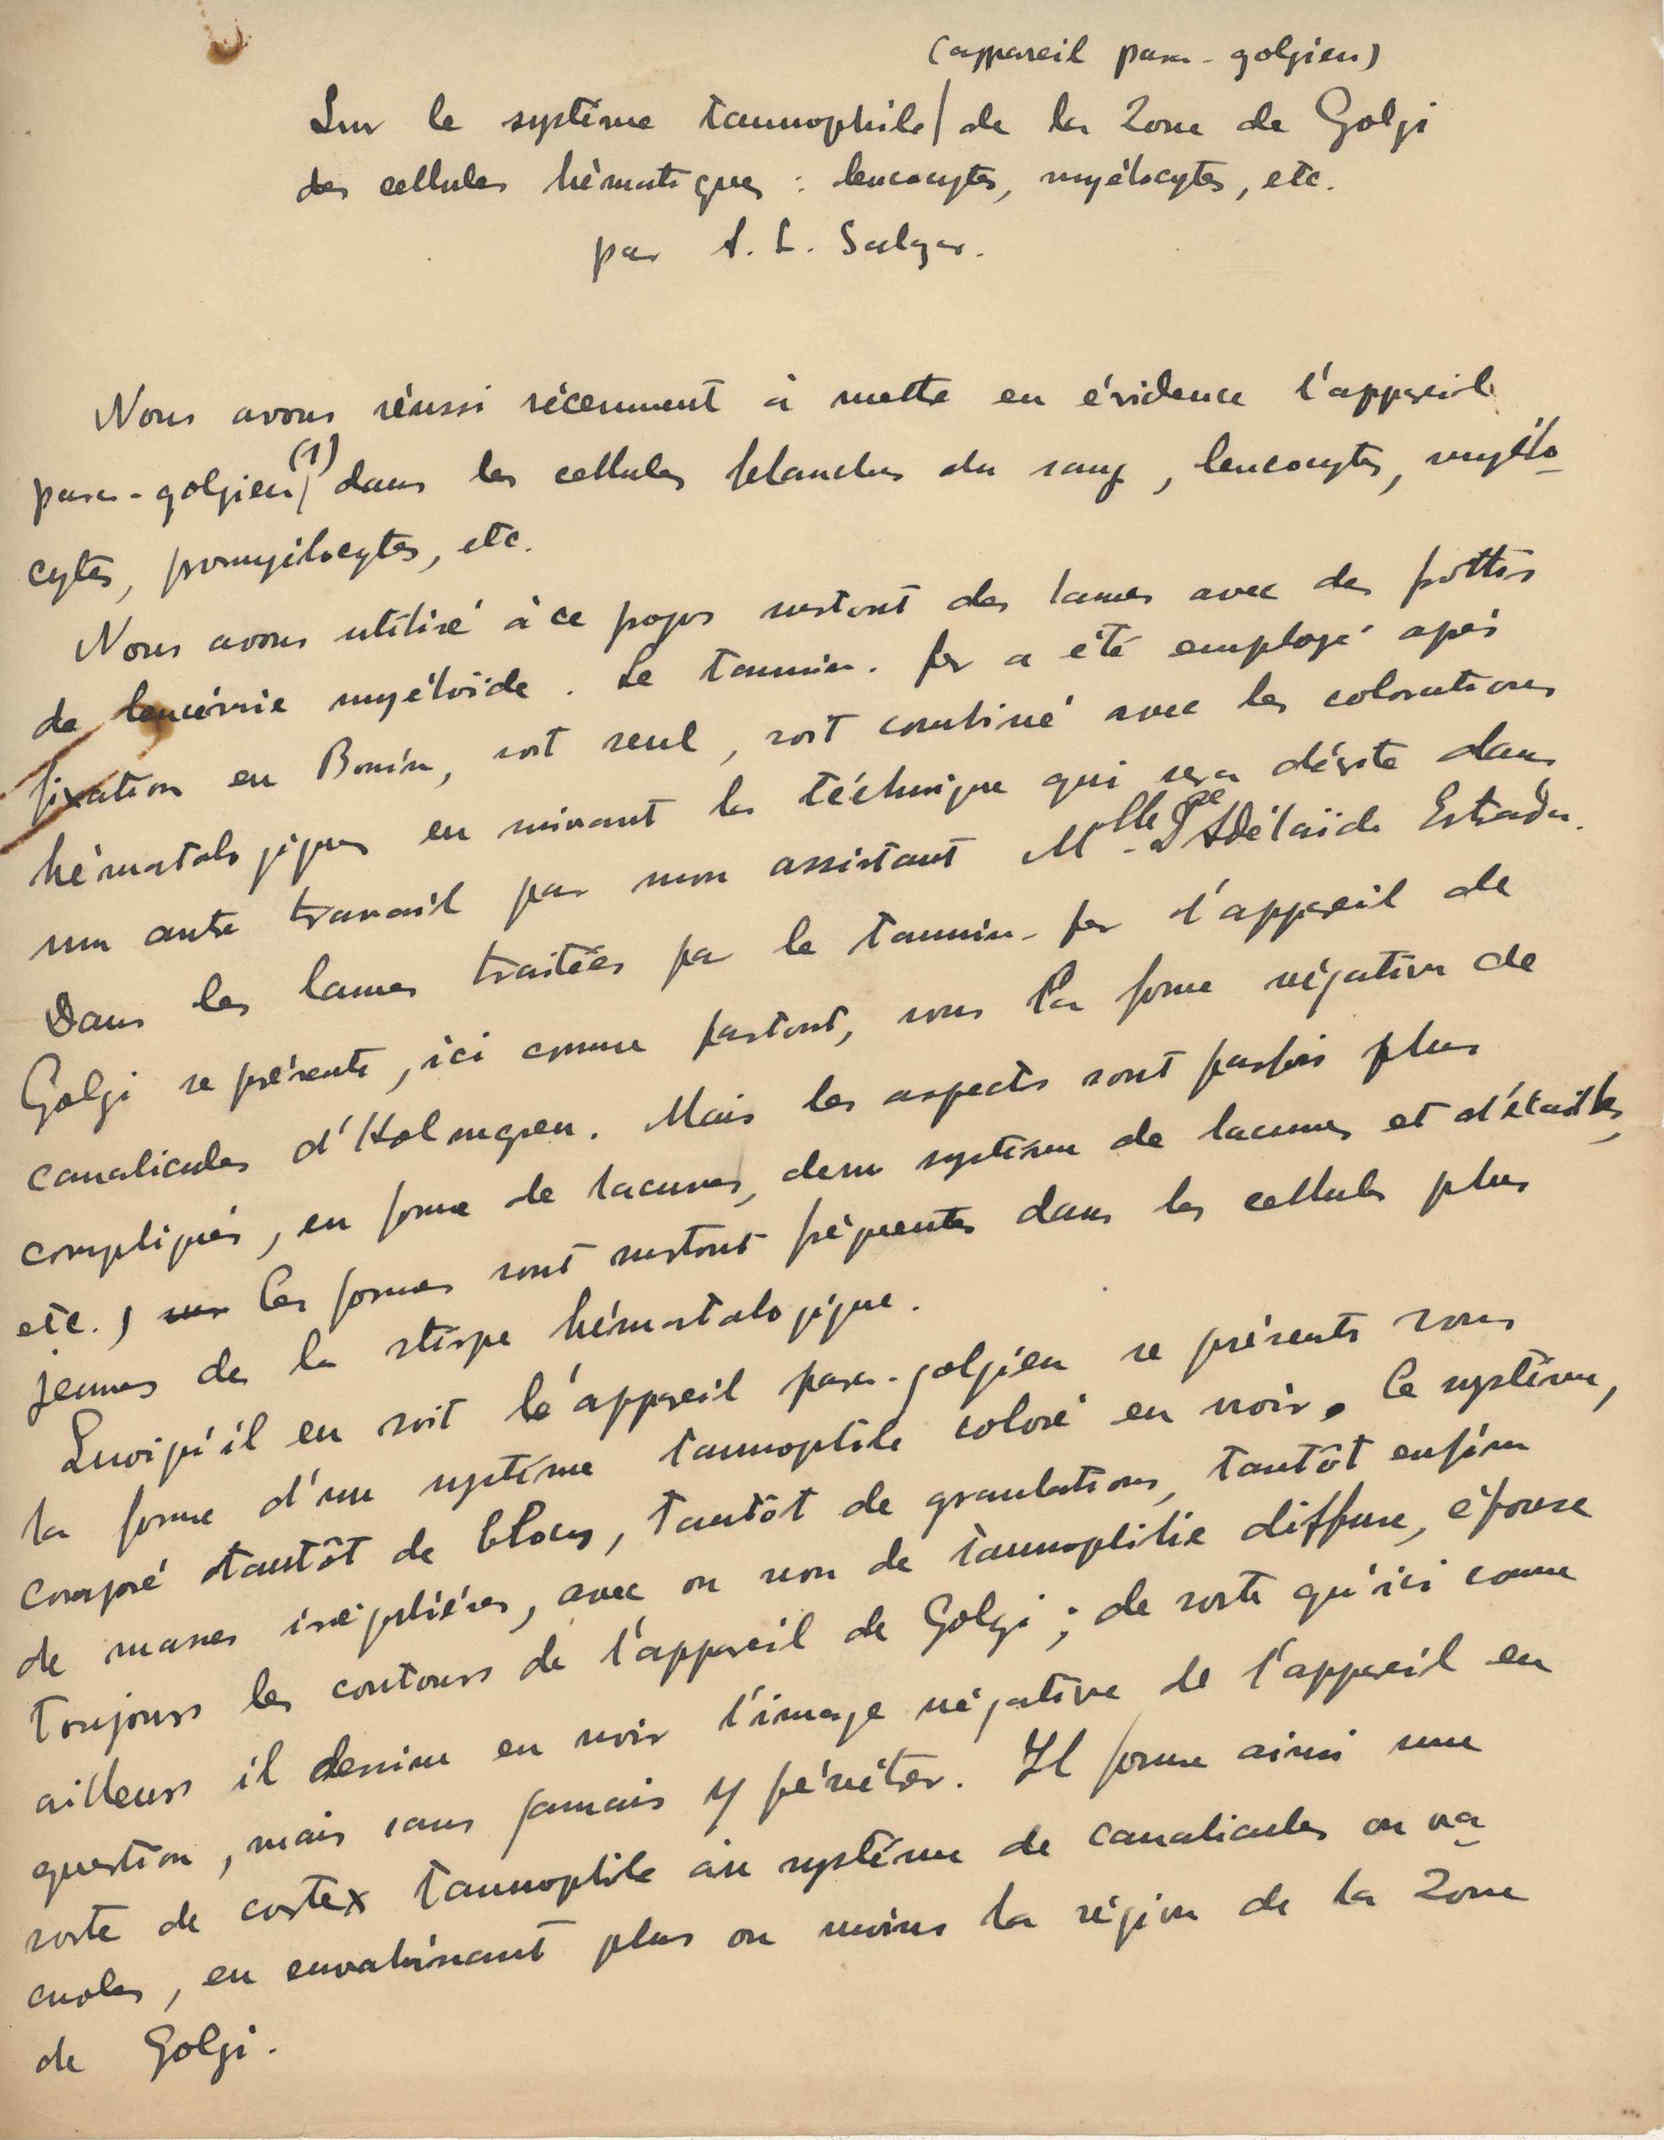 (appareil para-golgien)
Sur le système tannophile/ de la Zone de Golgi
des cellules hématiques : leucocytes, myélocytes, etc.
par A. L. Salazar.
Nous avons réussi récemment à mettre en évidence l'appareil
para-golgien/(1) dans les cellules blanches du sang, leucocytes, myélo-
cytes, promyélocytes, etc.
Nous avons utilisé à ce propos surtout des lames avec des frottis
de leucémie myéloïde. Le tannin-fer a été employé après
fixation en Bouin, soit seul, soit combiné avec les colorations
hématologiques en suivant la téchnique qui sera décrite dans
un autre travail par mon assistant Mlle Adélaïde Estrada.
Dans les lames traitées par le tannin-fer l'appareil de
Golgi se présente, ici comme partout, sous la forme négative de
canalicules d'Holmgren. Mais les aspects sont parfois plus
compliqués, en forme de lacunes, d'un système de lacunes et d'étoiles,
etc., Ces formes sont surtout fréquentes dans les cellules plus
jeunes de la stirpe hématologique.
Quoiqu'il en soit l'appareil para-golgien se présente sous
la forme d'un système tannophile coloré en noir. Ce système,
composé tantôt de blocs, tantôt de granulations, tantôt enfin
de masses irégulières, avec ou non de tannophilie diffuse, épouse
toujours les contours de l'appareil de Golgi ; de sorte qu'ici comme
ailleurs il dessine en noir l'image négative de l'appareil en
question, mais sans jamais y pénétrer. Il forme ainsi une
sorte de cortex tannophile au système de canalicules ou va-
cuoles, en envahissant plus ou moins la région de la Zone
de Golgi.